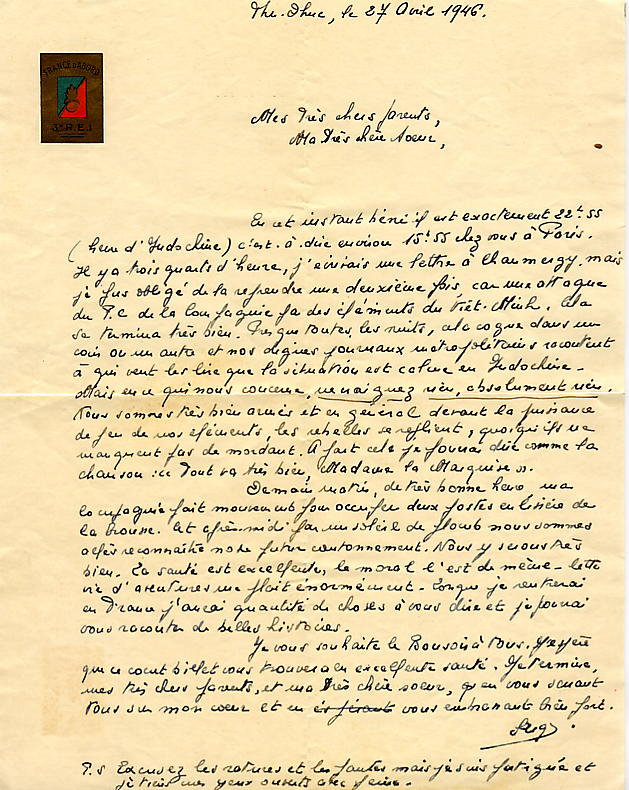 Thu-Dhuc, le 27 Avril 1946.
FRANCE D'ABORD
3e R.E.I
Mes Très chers parents,
Ma Très chère Soeur,
En cet instant béni il est exactement 22h55
(heure d'Indochine) c'est-à-dire environ 15h55 chez vous à Paris.
Il y a trois quarts d'heure, j'écrivais une lettre à Chaumergy, mais
je fus obligé de la reprendre une deuxième fois, car une attaque
du P.C de la Compagnie par des éléments du Viêt-Minh. Cela
se termina très bien. Presque toutes les nuits, cela cogne dans un
coin ou un autre et nos dignes journaux métropolitains racontent
à qui veut les lire que la situation est calme en Indochine-
Mais en ce qui nous concerne, ne craignez rien, absolument rien.
Nous sommes très bien armés et en général devant la puissance
de feu de nos éléments, les rebelles se replient, quoiqu'ils ne
manquent pas de mordant. A part cela je pourrai dire comme la
chanson : "Tout va très bien, Madame la Marquise".
Demain matin, de très bonne heure ma
compagnie fait mouvement pour occuper deux postes en lisière de
la brousse. Cet après-midi par un soleil de plomb nous sommes
allés reconnaître notre futur cantonnement. Nous y serons très
bien. La santé est excellente, le moral l'est de même- Cette
vie d'aventures me plaît énormément- Lorsque je rentrerai
en France j'aurai quantité de choses à vous dire et je pourrai
vous raconter de belles histoires.
Je vous souhaite le Bonsoir à tous. J'espère
que ce court billet vous trouvera en excellente santé. Je termine,
mes très chers parents, et ma Très chère soeur, en vous serrant
tous sur mon coeur et en vous embrassant bien fort.
P.S Excusez les ratures et les fautes mais je suis fatigué et
je tiens mes yeux ouverts avec peine.